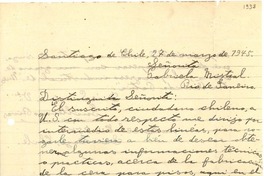 Santiago de Chile, 27 de marzo de 1945.
Señorita
Gabriela Mistral
Rio de Janeiro
Distinguida Señorita:
El suscrito, ciudadano chileno, a
U.S. con todo respeto me dirijo por
intermedio de estas líneas, para
tenga a bien de
algunas informaciones técnico
practicas, acerca de la fabricación
de la cera para pisos, aquí en el